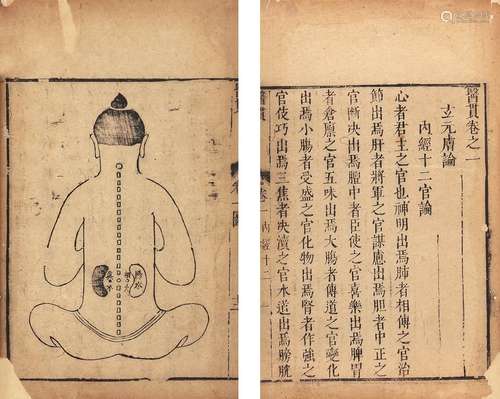 醫貫卷之一
玄元膚論
內經十二官論
心者君主之官也神明出焉肺者相傅之官治
節出焉肝者將軍之官謀慮出焉膽者中正之
官斷決出焉膻中者臣使之官喜樂出焉脾胃
者倉廩之官五味出焉大腸者傳道之官變化
出焉小腸者受盛之官化物出焉腎者作強之
官伎巧出焉三焦者決瀆之官水道出焉膀胱
醫貫
卷一
內經十二